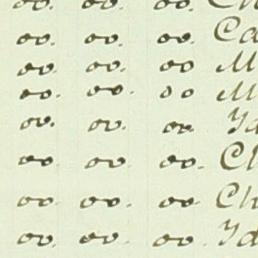 do. do. do. Ch
do. do. do. Ca
do. do. do M
do. do. do M
do. do. do Ja
do. do. do. Ch
do. do. do. Ch
do. do. do. Ja